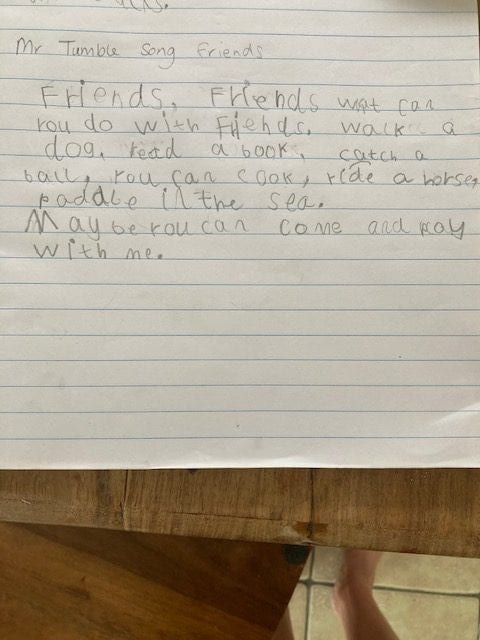 Mr Tumble Song Friends
Friends, Friends wat can
you do with Friends. walk a
dog, read a book, catch a
ball, you can cook, ride a horse,
paddle in the sea.
May be you can come and play
with me.